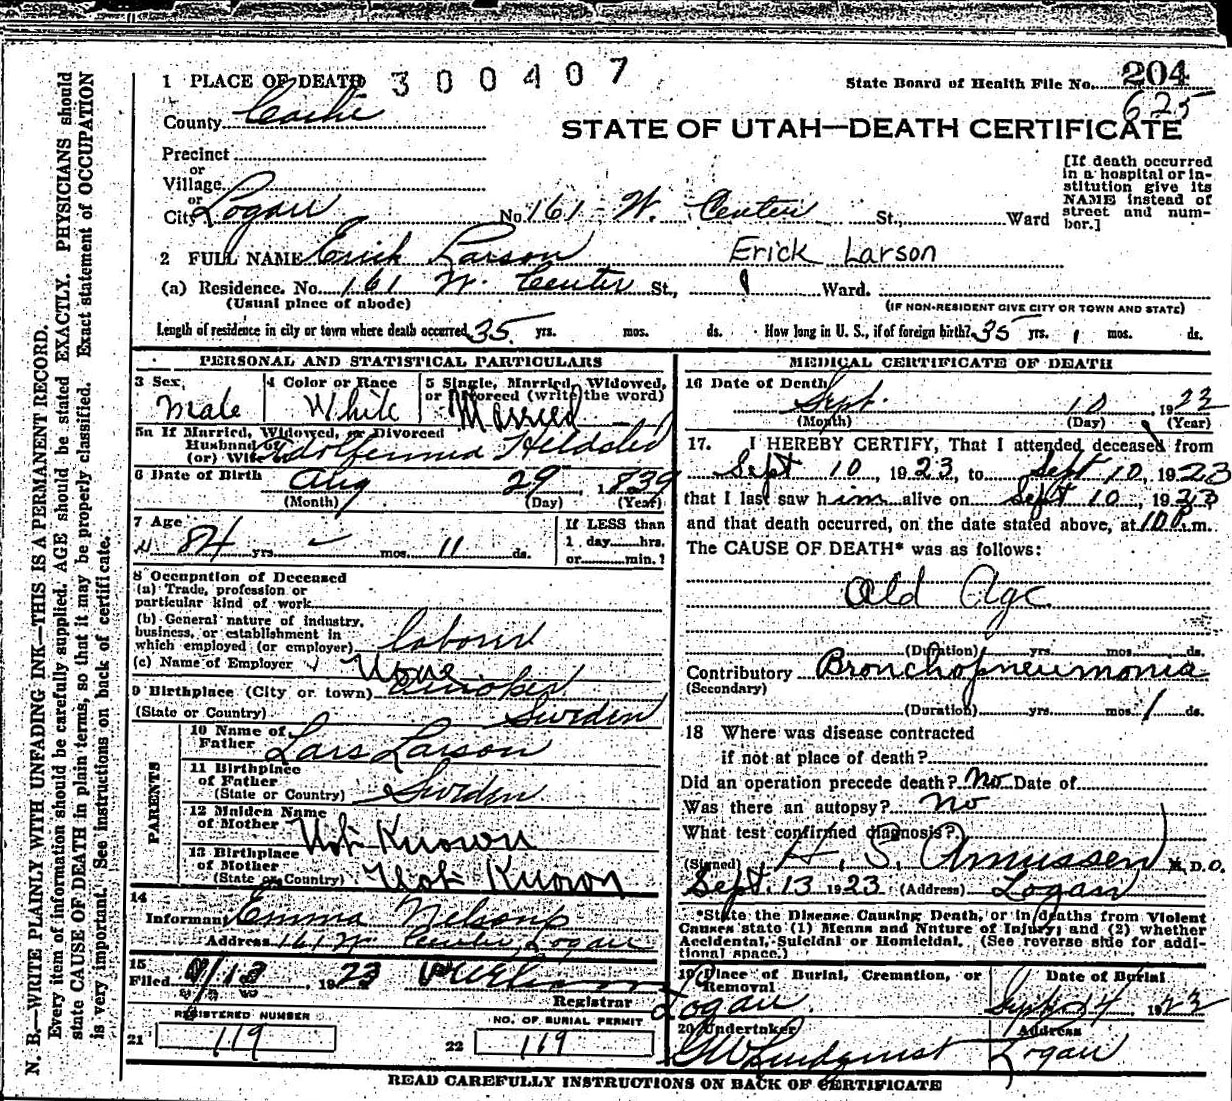 1 PLACE OF DEATH 300407 State Board of Health File No. 204
625
County Cache
STATE OF UTAH—DEATH CERTIFICATE
Precinct
or
Village
or
City Logan No. 161 W. Center St., Ward
[If death occurred in a hospital or institution give its NAME instead of street and number.]
2 FULL NAME Erick Larson Erick Larson
(a) Residence. No. 161 W. Center St., Ward.
(Usual place of abode) (IF NON-RESIDENT GIVE CITY OR TOWN AND STATE)
Length of residence in city or town where death occurred 35 yrs. mos. ds. How long in U. S., if of foreign birth? 35 yrs. 1 mos. ds.
PERSONAL AND STATISTICAL PARTICULARS
3 Sex 4 Color or Race 5 Single, Married, Widowed, or Divorced (write the word)
Male White Married
5a If Married, Widowed, or Divorced
Husband of
(or) Wife of
6 Date of Birth Aug 29 1839
(Month) (Day) (Year)
7 Age 84 yrs. – mos. 11 ds.
If LESS than
1 day......hrs.
or............min.?
8 Occupation of Deceased
(a) Trade, profession or
particular kind of work
(b) General nature of industry,
business, or establishment in
which employed (or employer) labourer
(c) Name of Employer None
9 Birthplace (City or town)
(State or Country) Sweden
PARENTS
10 Name of
Father Lars Larson
11 Birthplace
of Father
(State or Country) Sweden
12 Maiden Name
of Mother Not Known
13 Birthplace
of Mother
(State or Country) Not Known
14
Informant Emma Nelson
Address 161 W Center, Logan
15
Filed 9/13, 1923
Registrar
REGISTERED NUMBER NO. OF BURIAL PERMIT
21 119 22 119
MEDICAL CERTIFICATE OF DEATH
16 Date of Death Sept. 10, 1923
(Month) (Day) (Year)
17. I HEREBY CERTIFY, That I attended deceased from
Sept 10, 1923, to Sept 10, 1923
that I last saw him alive on Sept 10, 1923
and that death occurred, on the date stated above, at m.
The CAUSE OF DEATH* was as follows:
Old Age
(Duration) yrs. mos. ds.
Contributory Bronchopneumonia
(Secondary)
(Duration) yrs. mos. 1 ds.
18 Where was disease contracted
if not at place of death?
Did an operation precede death? No Date of
Was there an autopsy? No
What test confirmed diagnosis?
(Signed) H. S. Amussen M. D. O.
Sept. 13 1923 (Address) Logan
*State the Disease Causing Death, or in deaths from Violent
Causes state (1) Means and Nature of Injury; and (2) whether
Accidental, Suicidal or Homicidal. (See reverse side for addi-
tional space.)
19 Place of Burial, Cremation, or Removal Date of Burial
Logan Sept. 14, 1923
20 Undertaker Address
GW Lundquist Logan
READ CAREFULLY INSTRUCTIONS ON BACK OF CERTIFICATE
N. B.—WRITE PLAINLY WITH UNFADING INK—THIS IS A PERMANENT RECORD.
Every item of information should be carefully supplied. AGE should be stated EXACTLY. PHYSICIANS should
state CAUSE OF DEATH in plain terms, so that it may be properly classified. Exact statement of OCCUPATION
is very important. See instructions on back of certificate.